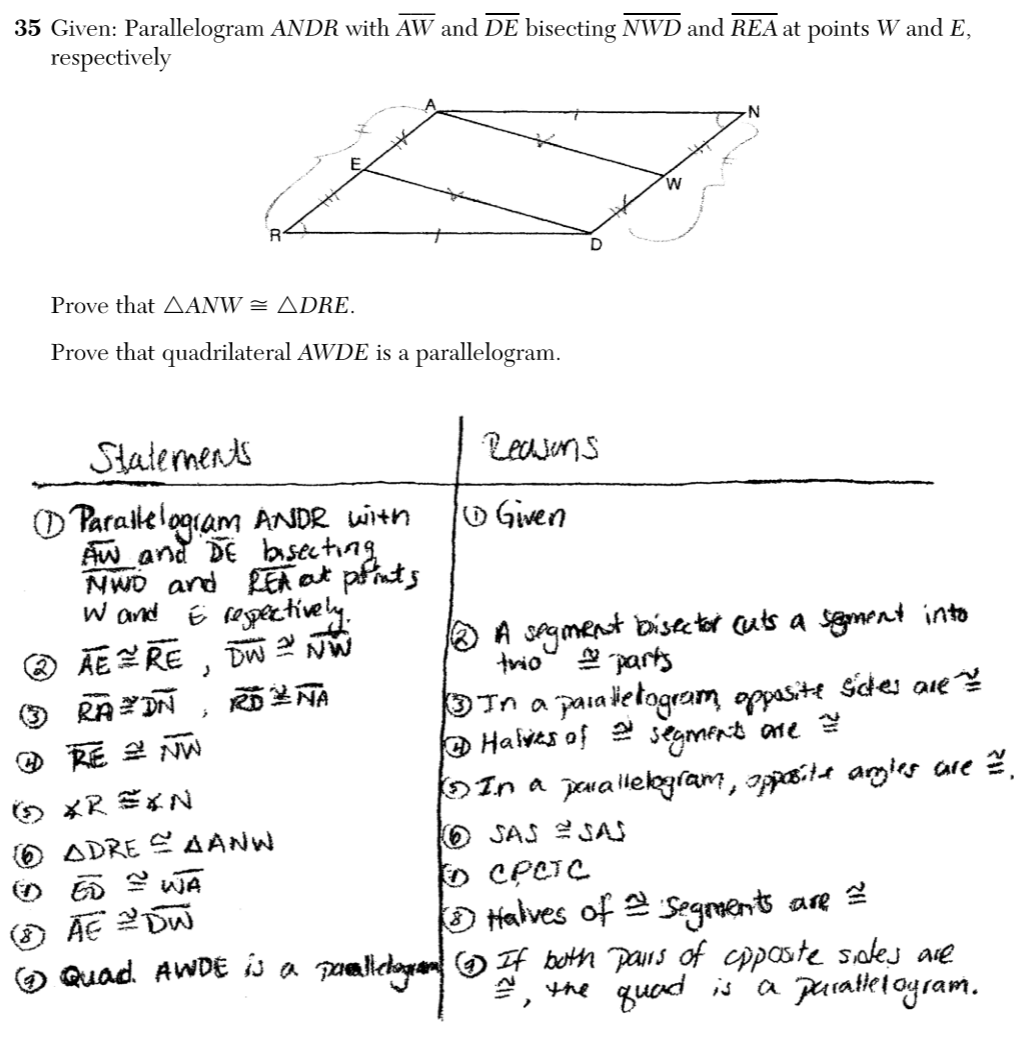 35 Given: Parallelogram ANDR with AW and DE bisecting NWD and REA at points W and E,
respectively
A
N
E
W
R
D
Prove that △ANW ≅ △DRE.
Prove that quadrilateral AWDE is a parallelogram.
Statements
Reasons
① Parallelogram ANDR with
AW and DE bisecting
NWD and REA at points
W and E respectively.
① Given
② AE ≅ RE , DW ≅ NW
② A segment bisector cuts a segment into
two ≅ parts
③ RA ≅ DN , RD ≅ NA
③ In a parallelogram, opposite sides are ≅
④ RE ≅ NW
④ Halves of ≅ segments are ≅
⑤ ∡R ≅ ∡N
⑤ In a parallelogram, opposite angles are ≅.
⑥ △DRE ≅ △ANW
⑥ SAS ≅ SAS
⑦ ED ≅ WA
⑦ CPCTC
⑧ AE ≅ DW
⑧ Halves of ≅ segments are ≅
⑨ Quad. AWDE is a parallelogram
⑨ If both pairs of opposite sides are
≅, the quad is a parallelogram.